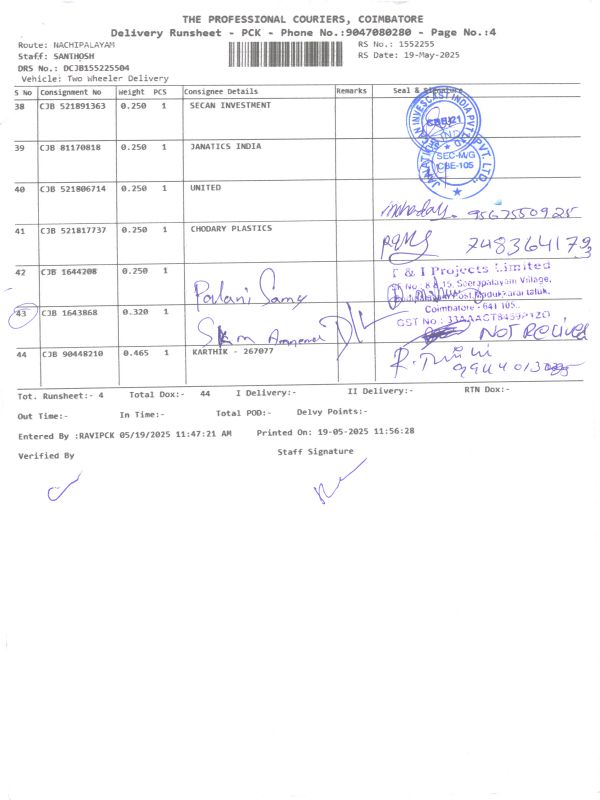 THE PROFESSIONAL COURIERS, COIMBATORE
Delivery Runsheet - PCK - Phone No.:9047080280 - Page No.:4
Route: NACHIPALAYAM
RS No.: 1552255
Staff: SANTHOSH
RS Date: 19-May-2025
DRS No.: DCJB155225504
Vehicle: Two Wheeler Delivery
S No Consignment No Weight PCS Consignee Details Remarks Seal & Signature
38 CJB 521891363 0.250 1 SECAN INVESTMENT
CBE-21
39 CJB 81170818 0.250 1 JANATICS INDIA
SEC-M/G
CBE-105
PVT. LTD.
40 CJB 521806714 0.250 1 UNITED
9567550925
41 CJB 521817737 0.250 1 CHODARY PLASTICS
7483641793
42 CJB 1644208 0.250 1 Palani Samy
T & I Projects Limited
Seerapalayam Village,
Coimbatore - 641 105.
43 CJB 1643868 0.320 1
NOT Recived
44 CJB 90448210 0.465 1 KARTHIK - 267077
Tot. Runsheet:- 4 Total Dox:- 44 I Delivery:- II Delivery:- RTN Dox:-
Out Time:- In Time:- Total POD:- Delvy Points:-
Entered By :RAVIPCK 05/19/2025 11:47:21 AM Printed On: 19-05-2025 11:56:28
Verified By Staff Signature